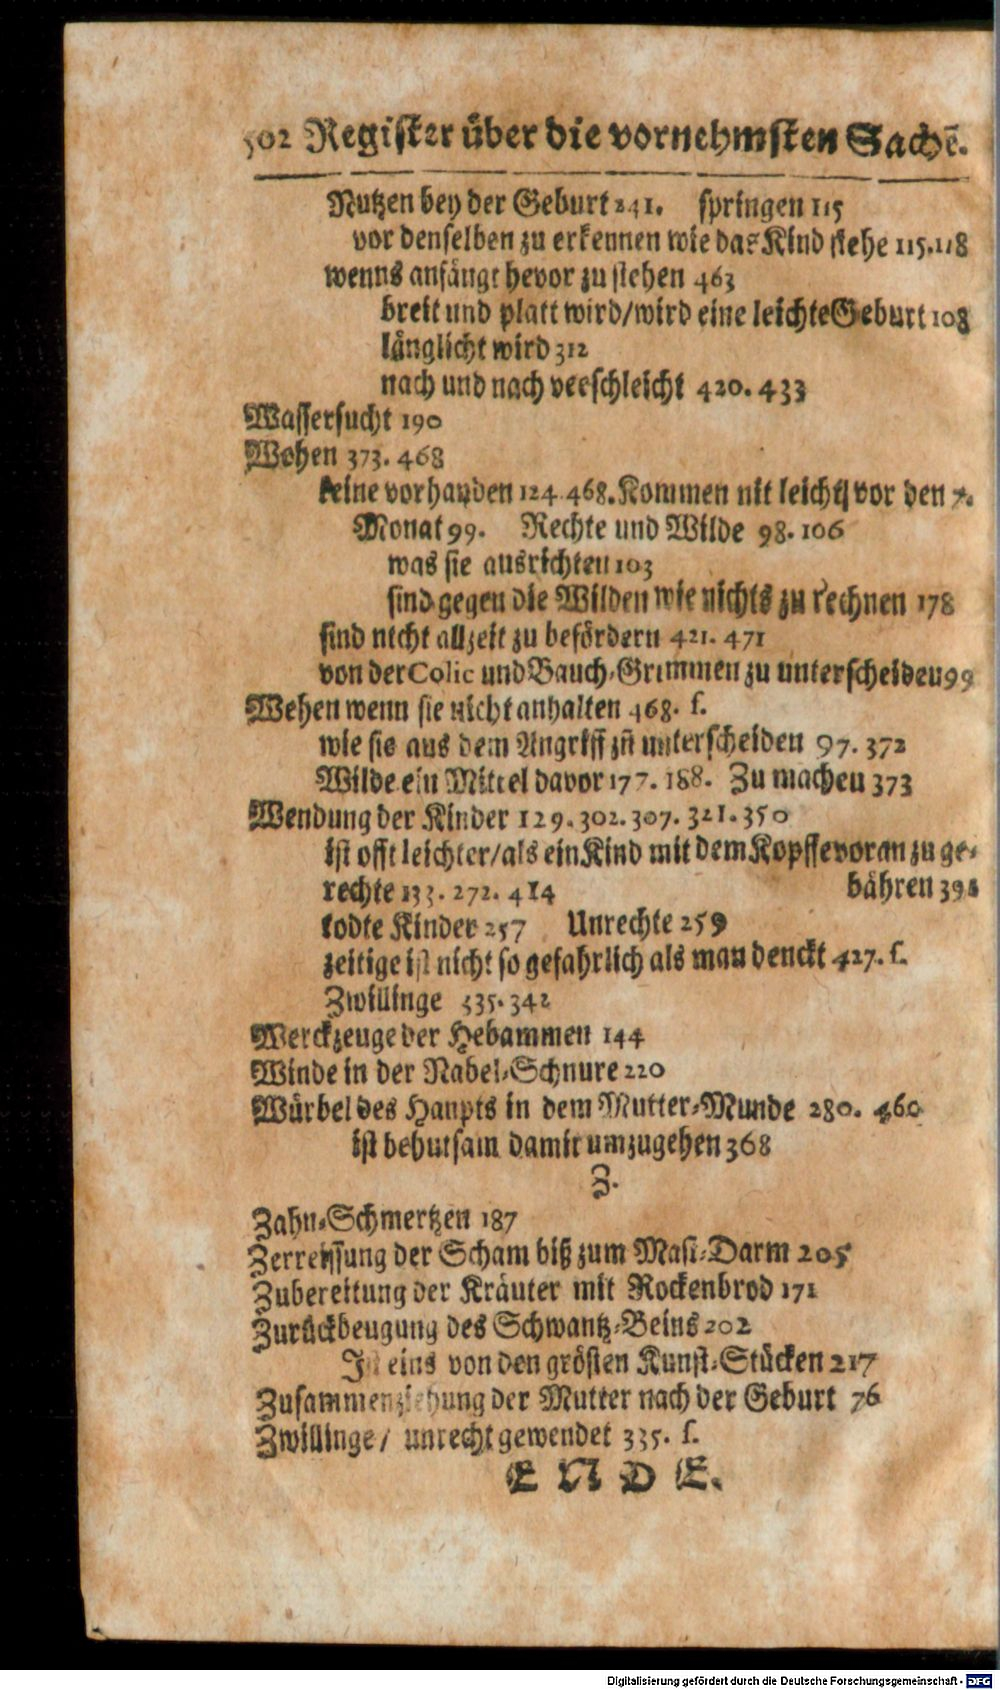 502 Register über die vornehmsten Sachē.
Nutzen bey der Geburt 241. springen 115
vor denselben zu erkennen wie das Kind stehe 115.118
wenns anfängt hevor zu stehen 463
breit und platt wird/wird eine leichte Geburt 108
länglicht wird 312
nach und nach verschleicht 420. 433
Wassersucht 190
Wehen 373. 468
keine vorhanden 124 468. Kommen nit leichtl vor den 7.
Monat 99. Rechte und Wilde 98. 106
was sie ausrichten 103
sind gegen die Wilden wie nichts zu rechnen 178
sind nicht allzeit zu befördern 421. 471
von der Colic und Bauch-Grimmen zu unterscheiden 99
Wehen wenn sie nicht anhalten 468. f.
wie sie aus dem Angriff zu unterscheiden 97. 372
Wilde ein Mittel davor 177. 188. Zu machen 373
Wendung der Kinder 129. 302. 307. 321. 350
ist offt leichter/als ein Kind mit dem Kopffe voran zu ge-
rechte 133. 272. 414 bähren 394
todte Kinder 257 Unrechte 259
zeitige ist nicht so gefahrlich als man denckt 427. f.
Zwillinge 335. 342
Werckzeuge der Hebammen 144
Winde in der Nabel-Schnure 220
Würbel des Haupts in dem Mutter-Munde 280. 460
ist behutsam damit umzugehen 368
Z.
Zahn-Schmertzen 187
Zerreissung der Scham biß zum Mast-Darm 205
Zubereitung der Kräuter mit Rockenbrod 171
Zurückbeugung des Schwantz-Beins 202
Ist eins von den grösten Kunst-Stücken 217
Zusammenziehung der Mutter nach der Geburt 76
Zwillinge / unrecht gewendet 335. f.
E N D E.
Digitalisierung gefördert durch die Deutsche Forschungsgemeinschaft - DFG